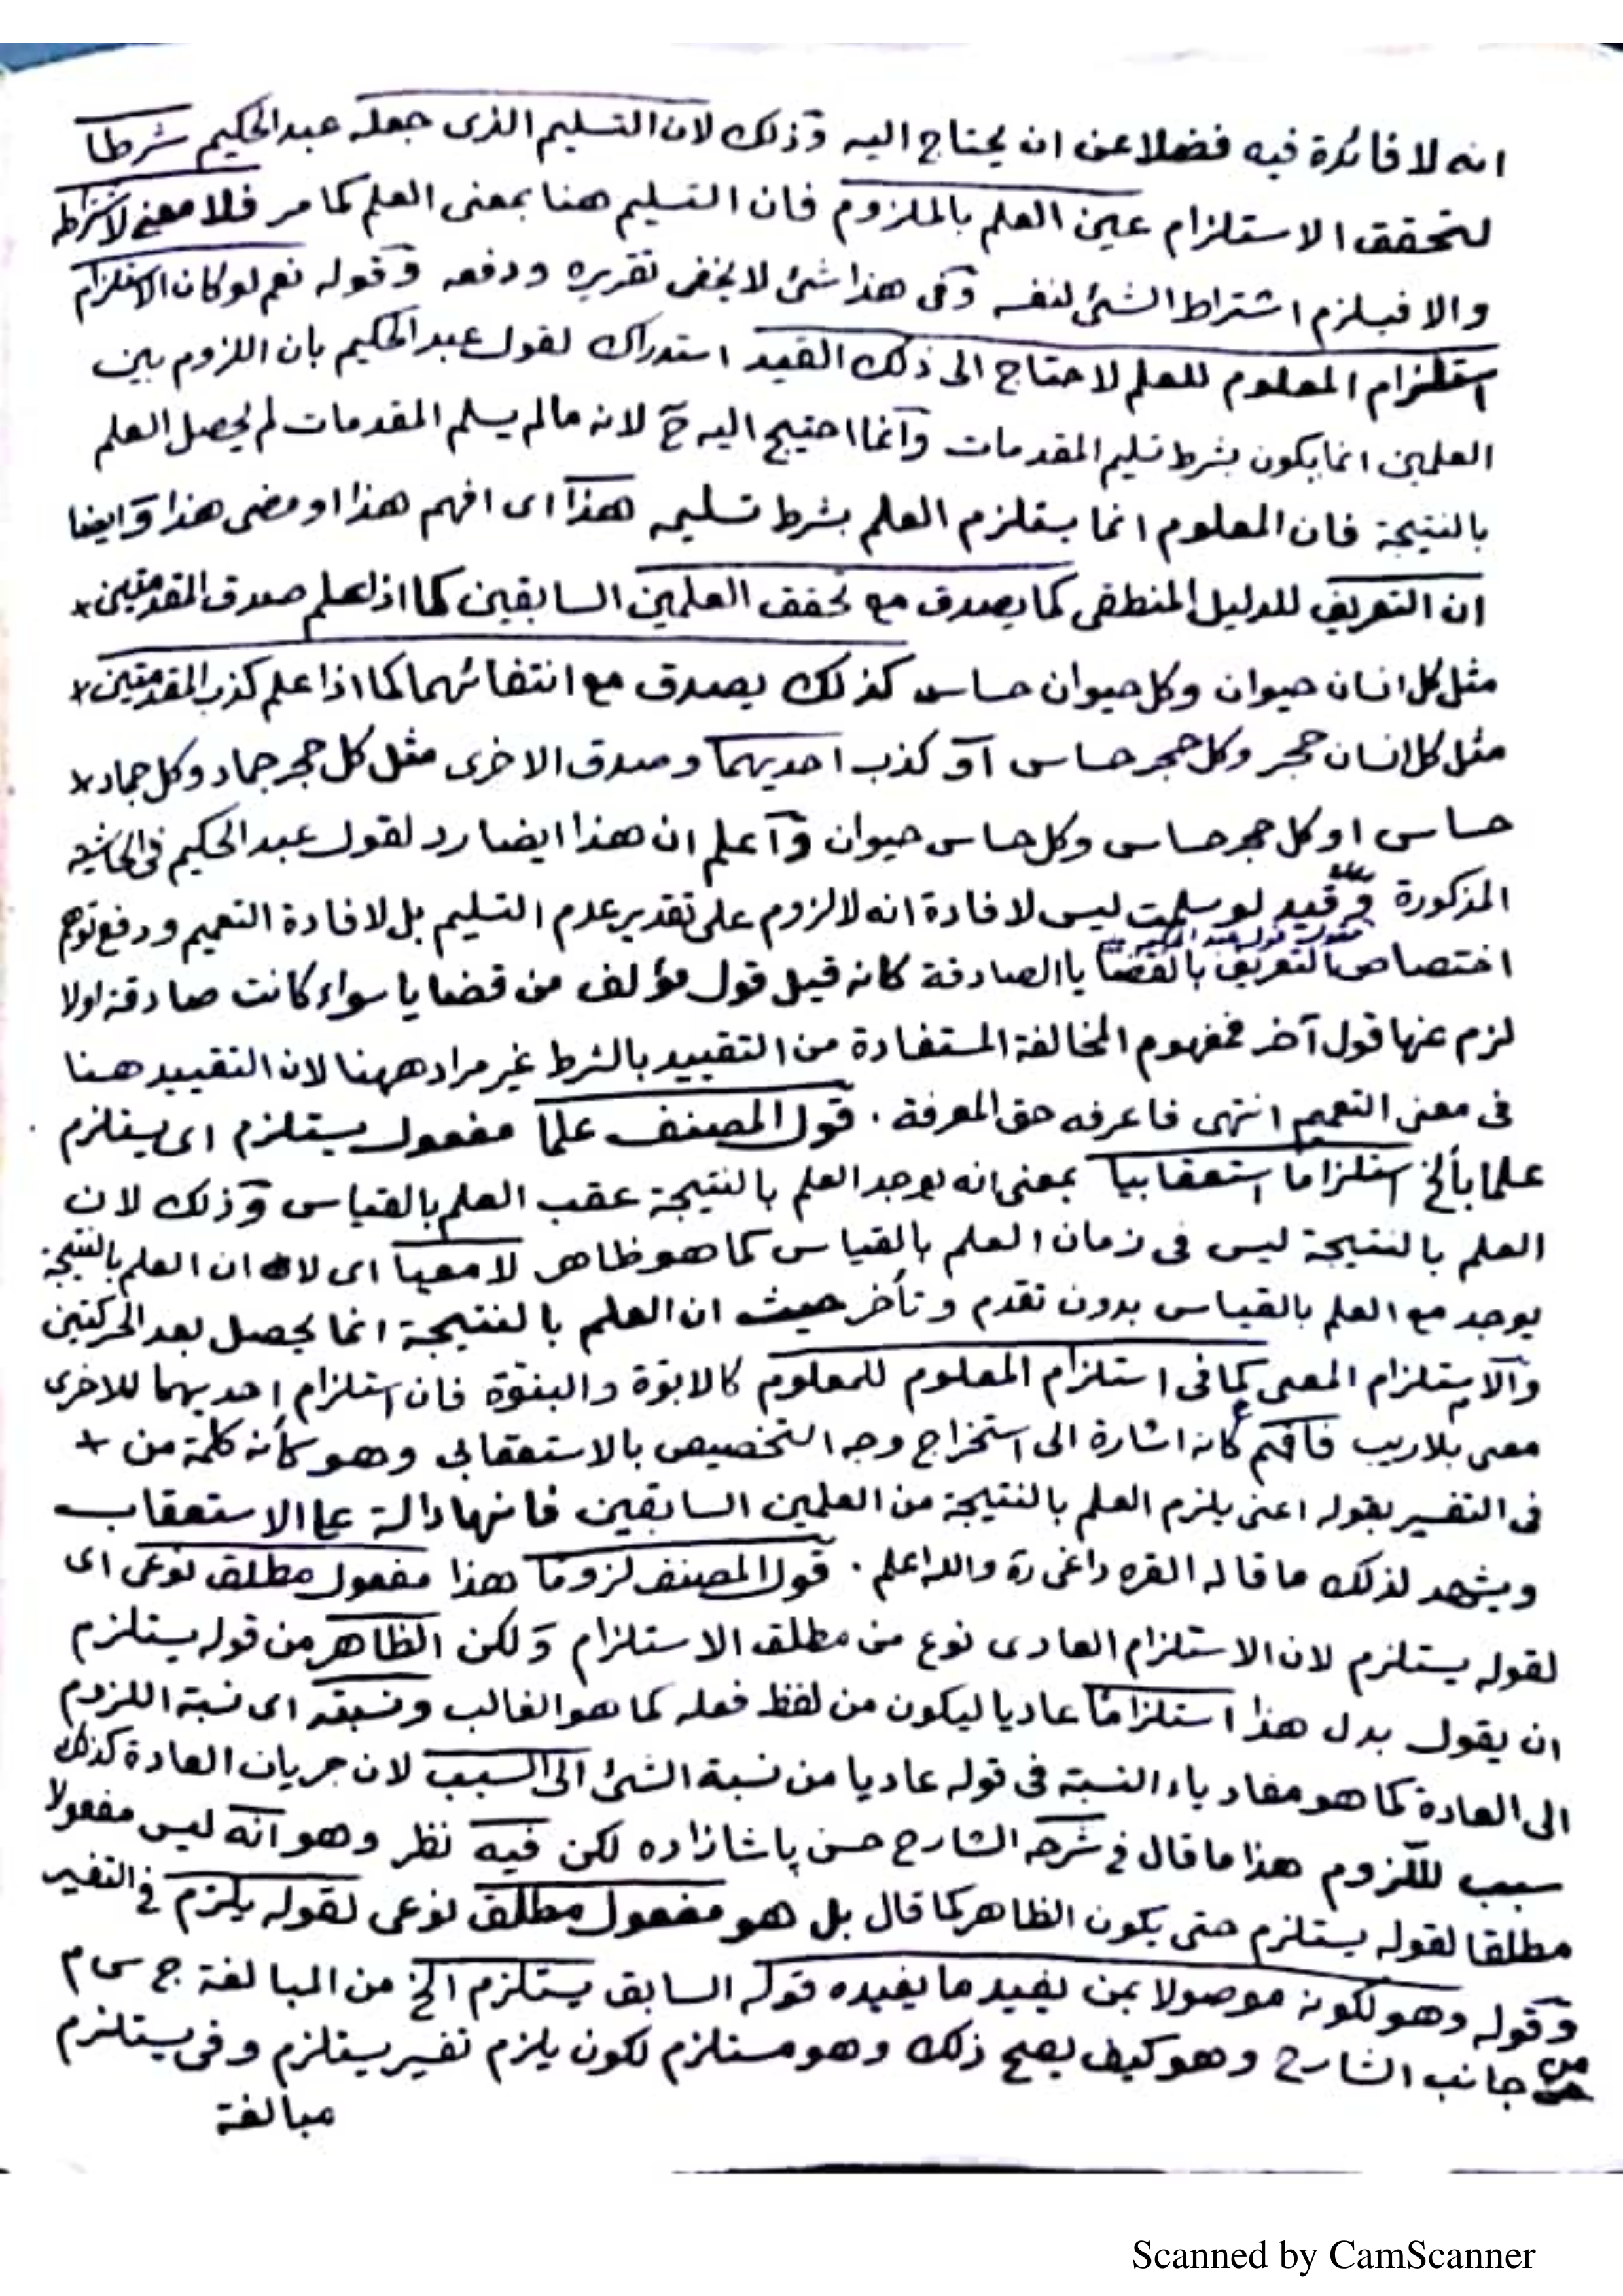 انه لا فائدة فيه فضلا عن ان يحتاج اليه وذلك لان التسليم الذى جعله عبد الحكيم شرطا
لتحقق الاستلزام عين العلم بالملزوم فان التسليم هنا بمعنى العلم كما مر فلا معنى لاشتراطه
والا فيلزم اشتراط الشئ لنفسه وفى هذا شئ لا يخفى تقريره ودفعه وقوله نعم لو كان الاستلزام
استلزام المعلوم للعلم لاحتاج الى ذلك القيد استدراك لقول عبد الحكيم بان اللزوم بين
العلمين انما يكون بشرط تسليم المقدمات وانما احتيج اليه ح لانه ما لم يسلم المقدمات لم يحصل العلم
بالنتيجة فان المعلوم انما يستلزم العلم بشرط تسليمه هذا اى افهم هذا او مضى هذا وايضا
ان التعريف للدليل المنطقى كما يصدق مع تحقق العلمين السابقين كما اذا علم صدق المقدمتين +
مثل كل انسان حيوان وكل حيوان حساس كذلك يصدق مع انتفائهما كما اذا علم كذب المقدمتين +
مثل كل انسان حجر وكل حجر حساس او كذب احديهما وصدق الاخرى مثل كل حجر جماد وكل جماد +
حساس او كل حجر حساس وكل حساس حيوان واعلم ان هذا ايضا رد لقول عبد الحكيم فى الحاشية
المذكورة وقيد لو سلمت ليس لافادة انه لا لزوم على تقدير عدم التسليم بل لافادة التعميم ودفع توهم
مقول قول عبد الحكيم
اختصاص التعريف بالقضايا الصادقة كانه قيل قول مؤلف من قضايا سواء كانت صادقة او لا
لزم عنها قول آخر فمفهوم المخالفة المستفادة من التقييد بالشرط غير مراد ههنا لان التقييد هنا
فى معنى التعميم انتهى فاعرفه حق المعرفة . قول المصنف علما مفعول يستلزم اى يستلزم
علما بألخ استلزاما استعقابيا بمعنى انه يوجد العلم بالنتيجة عقب العلم بالقياس وذلك لان
العلم بالنتيجة ليس فى زمان العلم بالقياس كما هو ظاهر لا معيا اى لا ان العلم بالنتيجة
يوجد مع العلم بالقياس بدون تقدم وتأخر حيث ان العلم بالنتيجة انما يحصل بعد الحركتين
والاستلزام المعى كما فى استلزام المعلوم للمعلوم كالابوّة والبنوّة فان استلزام احديهما للاخرى
معى بلاريب فافهم كانه اشارة الى استخراج وجه التخصيص بالاستعقابى وهو كأنه كلمة من +
فى التفسير بقوله اعنى يلزم العلم بالنتيجة من العلمين السابقين فانها دالة على الاستعقاب
ويشهد لذلك ما قاله القره داغى ره والله اعلم . قول المصنف لزوما هذا مفعول مطلق نوعى اى
لقوله يستلزم لان الاستلزام العادى نوع من مطلق الاستلزام ولكن الظاهر من قوله يستلزم
ان يقول بدل هذا استلزاما عاديا ليكون من لفظ فعله كما هو الغالب ونسبته اى نسبة اللزوم
الى العادة كما هو مفاد ياء النسبة فى قوله عاديا من نسبة الشئ الى السبب لان جريان العادة كذلك
سبب للّزوم هذا ما قال فى شرحه الشارح حسن پاشا زاده لكن فيه نظر وهو انه ليس مفعولا
مطلقا لقوله يستلزم حتى يكون الظاهر كما قال بل هو مفعول مطلق نوعى لقوله يلزم فى التفسير
وقوله وهو لكونه موصولا بمن يفيد ما يفيده قوله السابق يستلزم الخ من المبالغة ج س م
من جانب الشارح وهو كيف يصح ذلك وهو مستلزم لكون يلزم تفسير يستلزم وفى يستلزم
مبالغة
Scanned by CamScanner